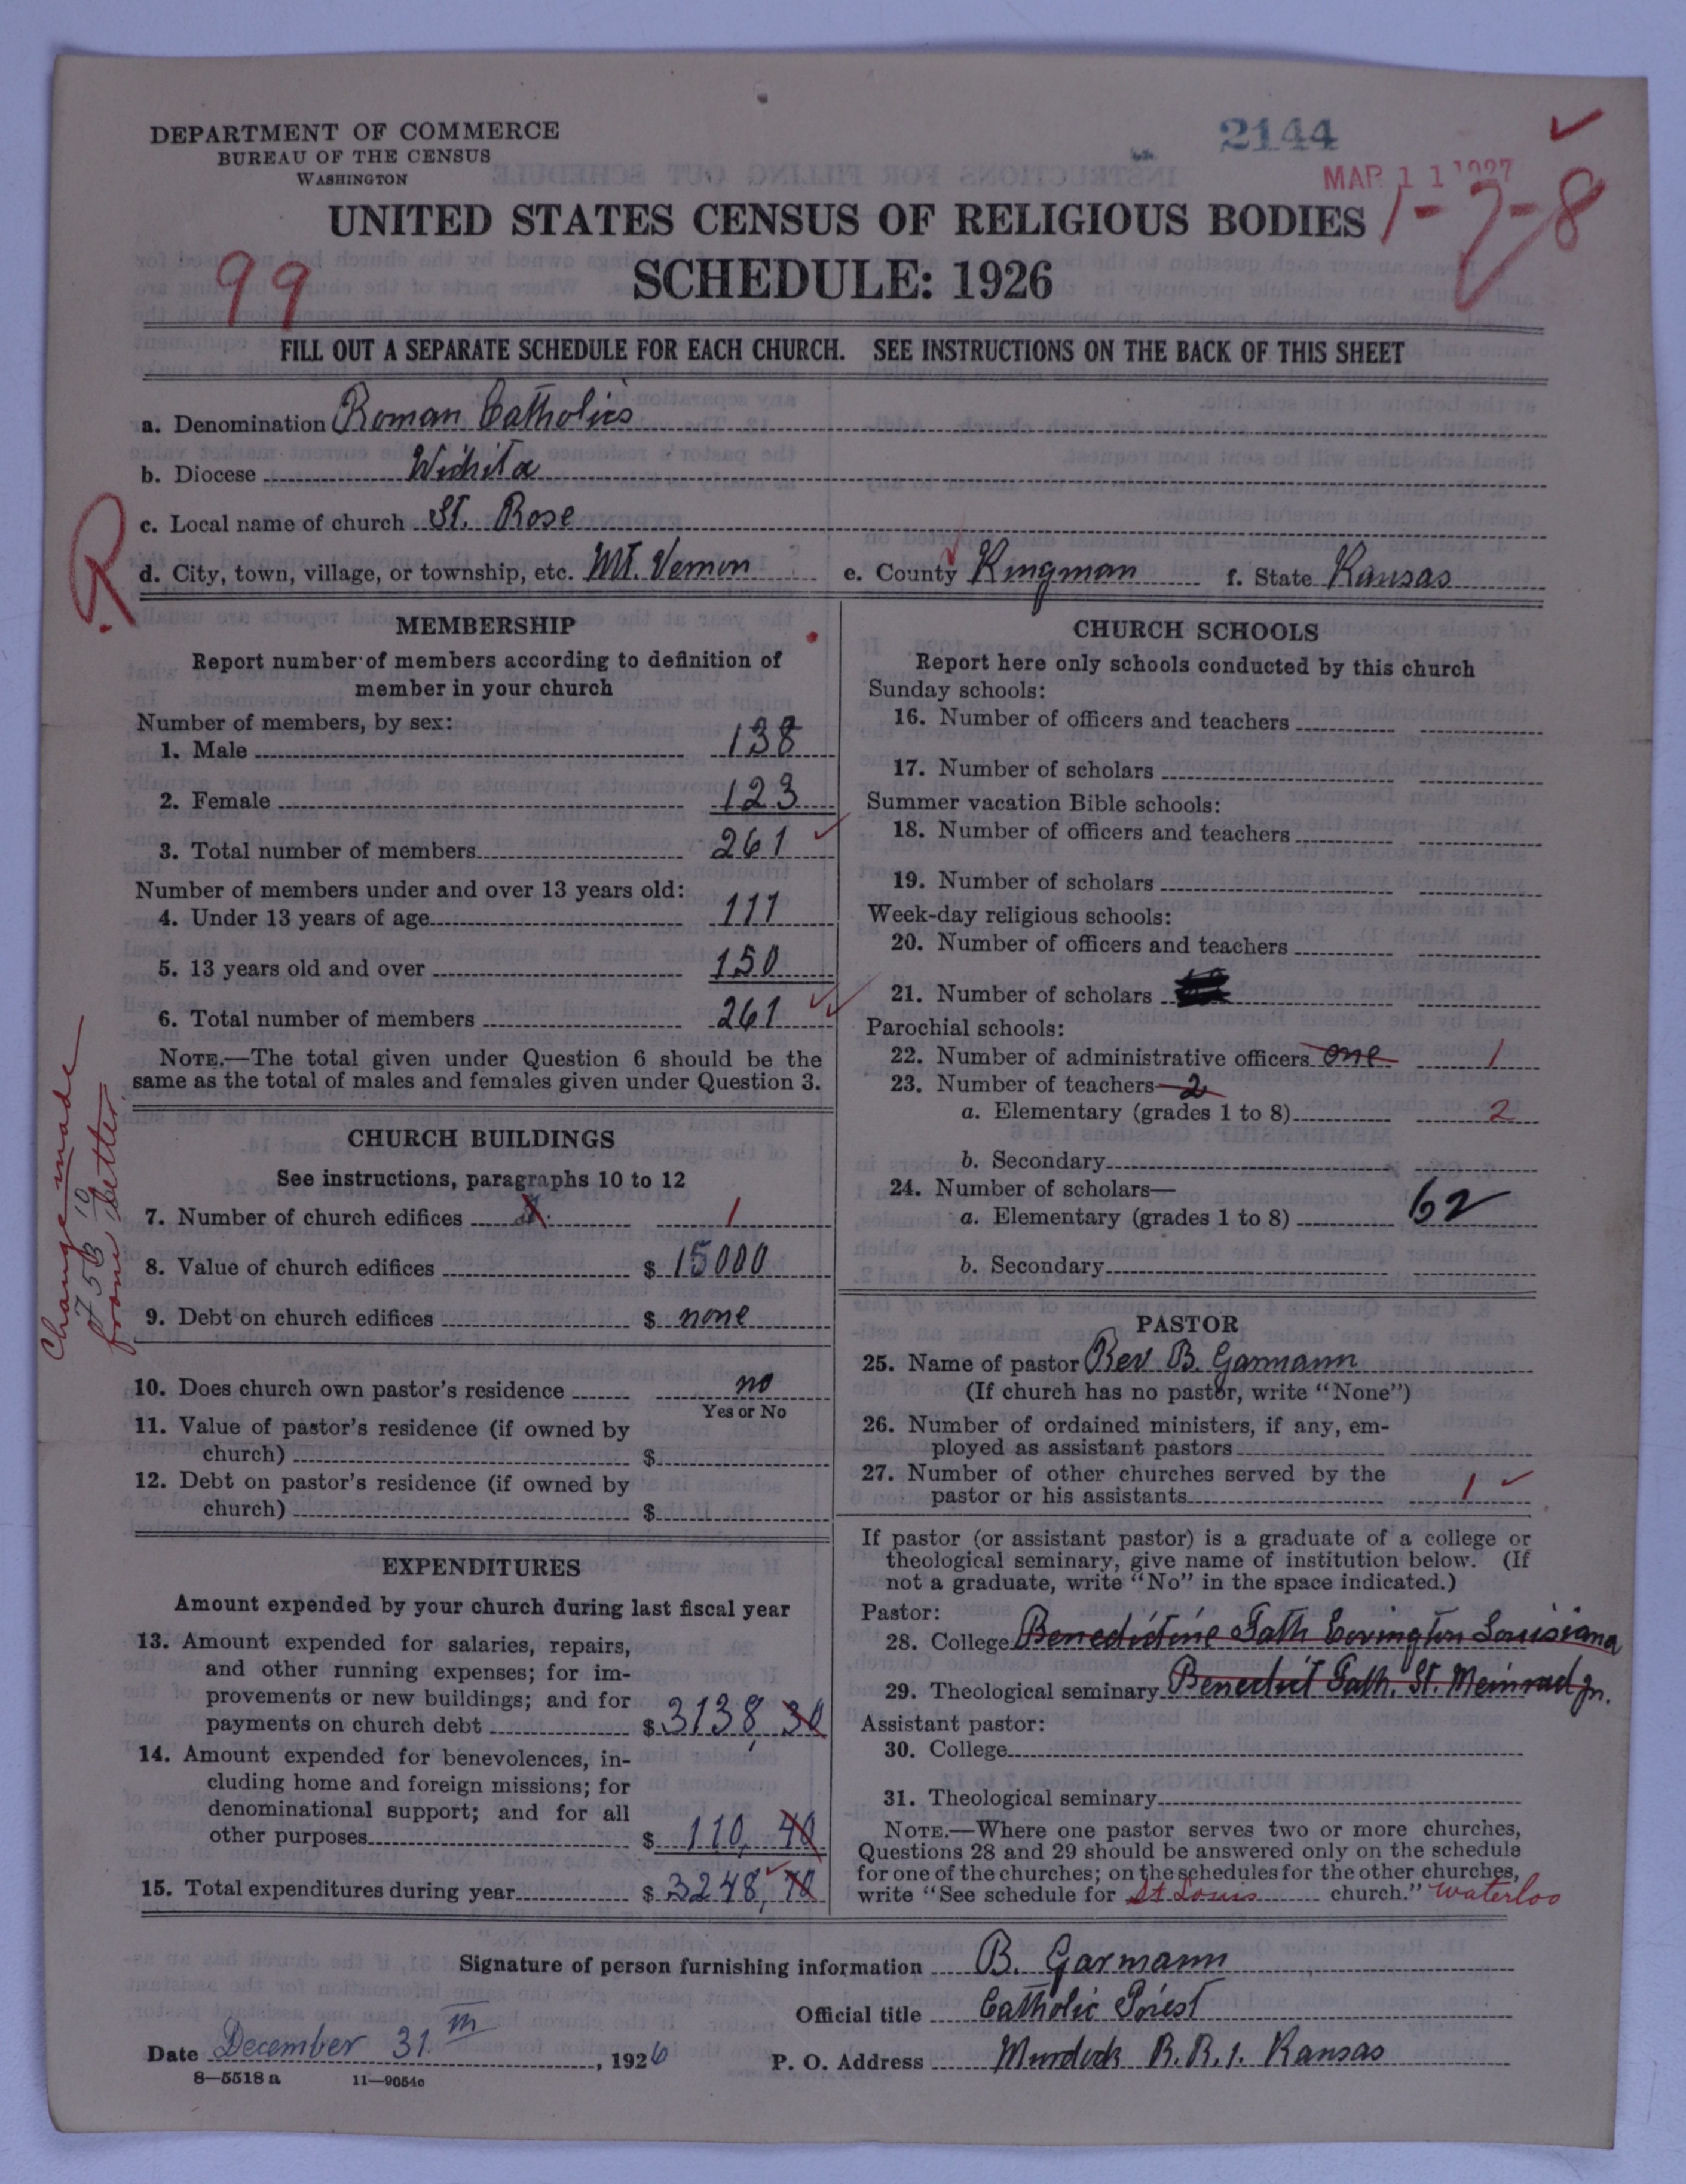 DEPARTMENT OF COMMERCE
BUREAU OF THE CENSUS
WASHINGTON
2144
MAR 11 1927
1-7-8
UNITED STATES CENSUS OF RELIGIOUS BODIES
99
SCHEDULE: 1926
FILL OUT A SEPARATE SCHEDULE FOR EACH CHURCH. SEE INSTRUCTIONS ON THE BACK OF THIS SHEET
a. Denomination Roman Catholics
b. Diocese Wichita
c. Local name of church St. Rose
R
d. City, town, village, or township, etc. Mt. Vernon e. County Kingman f. State Kansas
MEMBERSHIP
Report number of members according to definition of
member in your church
Number of members, by sex:
1. Male 138
2. Female 123
3. Total number of members 261
Number of members under and over 13 years old:
4. Under 13 years of age 111
5. 13 years old and over 150
6. Total number of members 261
NOTE.—The total given under Question 6 should be the
same as the total of males and females given under Question 3.
CHURCH BUILDINGS
See instructions, paragraphs 10 to 12
7. Number of church edifices 1
8. Value of church edifices $ 15000
9. Debt on church edifices $ none
10. Does church own pastor's residence no
Yes or No
11. Value of pastor's residence (if owned by
church) $
12. Debt on pastor's residence (if owned by
church) $
Change made
from letter
EXPENDITURES
Amount expended by your church during last fiscal year
13. Amount expended for salaries, repairs,
and other running expenses; for im-
provements or new buildings; and for
payments on church debt $ 3138,30
14. Amount expended for benevolences, in-
cluding home and foreign missions; for
denominational support; and for all
other purposes $ 110,40
15. Total expenditures during year $ 3248,70
CHURCH SCHOOLS
Report here only schools conducted by this church
Sunday schools:
16. Number of officers and teachers
17. Number of scholars
Summer vacation Bible schools:
18. Number of officers and teachers
19. Number of scholars
Week-day religious schools:
20. Number of officers and teachers
21. Number of scholars
Parochial schools:
22. Number of administrative officers one 1
23. Number of teachers—2
a. Elementary (grades 1 to 8) 2
b. Secondary
24. Number of scholars—
a. Elementary (grades 1 to 8) 62
b. Secondary
PASTOR
25. Name of pastor Rev B. Garmann
(If church has no pastor, write "None")
26. Number of ordained ministers, if any, em-
ployed as assistant pastors
27. Number of other churches served by the
pastor or his assistants 1
If pastor (or assistant pastor) is a graduate of a college or
theological seminary, give name of institution below. (If
not a graduate, write "No" in the space indicated.)
Pastor:
28. College Benedictine Fath Covington Louisiana
29. Theological seminary Benedict Fath. St. Meinrad Jn.
Assistant pastor:
30. College
31. Theological seminary
NOTE.—Where one pastor serves two or more churches,
Questions 28 and 29 should be answered only on the schedule
for one of the churches; on the schedules for the other churches,
write "See schedule for St Louis church." Waterloo
Signature of person furnishing information B. Garmann
Official title Catholic Priest
Date December 31th, 1926 P. O. Address Murdock R.R.1. Kansas
8—5518 a 11—9054c